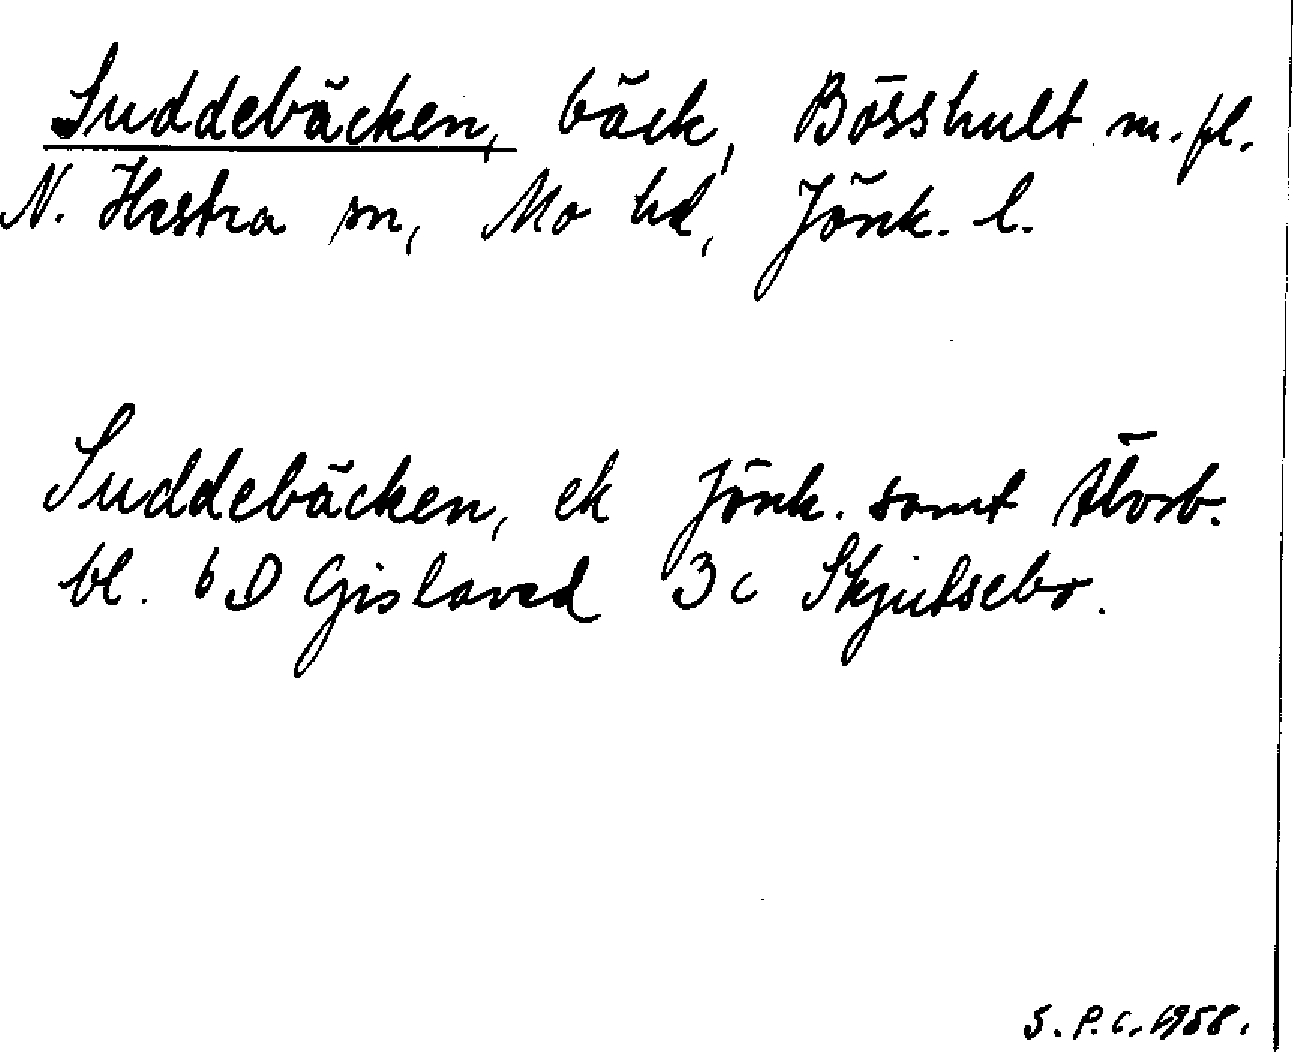 Suddebäcken, bäck, Bösshult m. fl.
N. Hestra sn, Mo hd, Jönk. l.
Suddebäcken, ek Jönk. samt Älvsb.
bl. 6 D Gislaved 3 c Skjutsebo.
S. P. C. 1958.